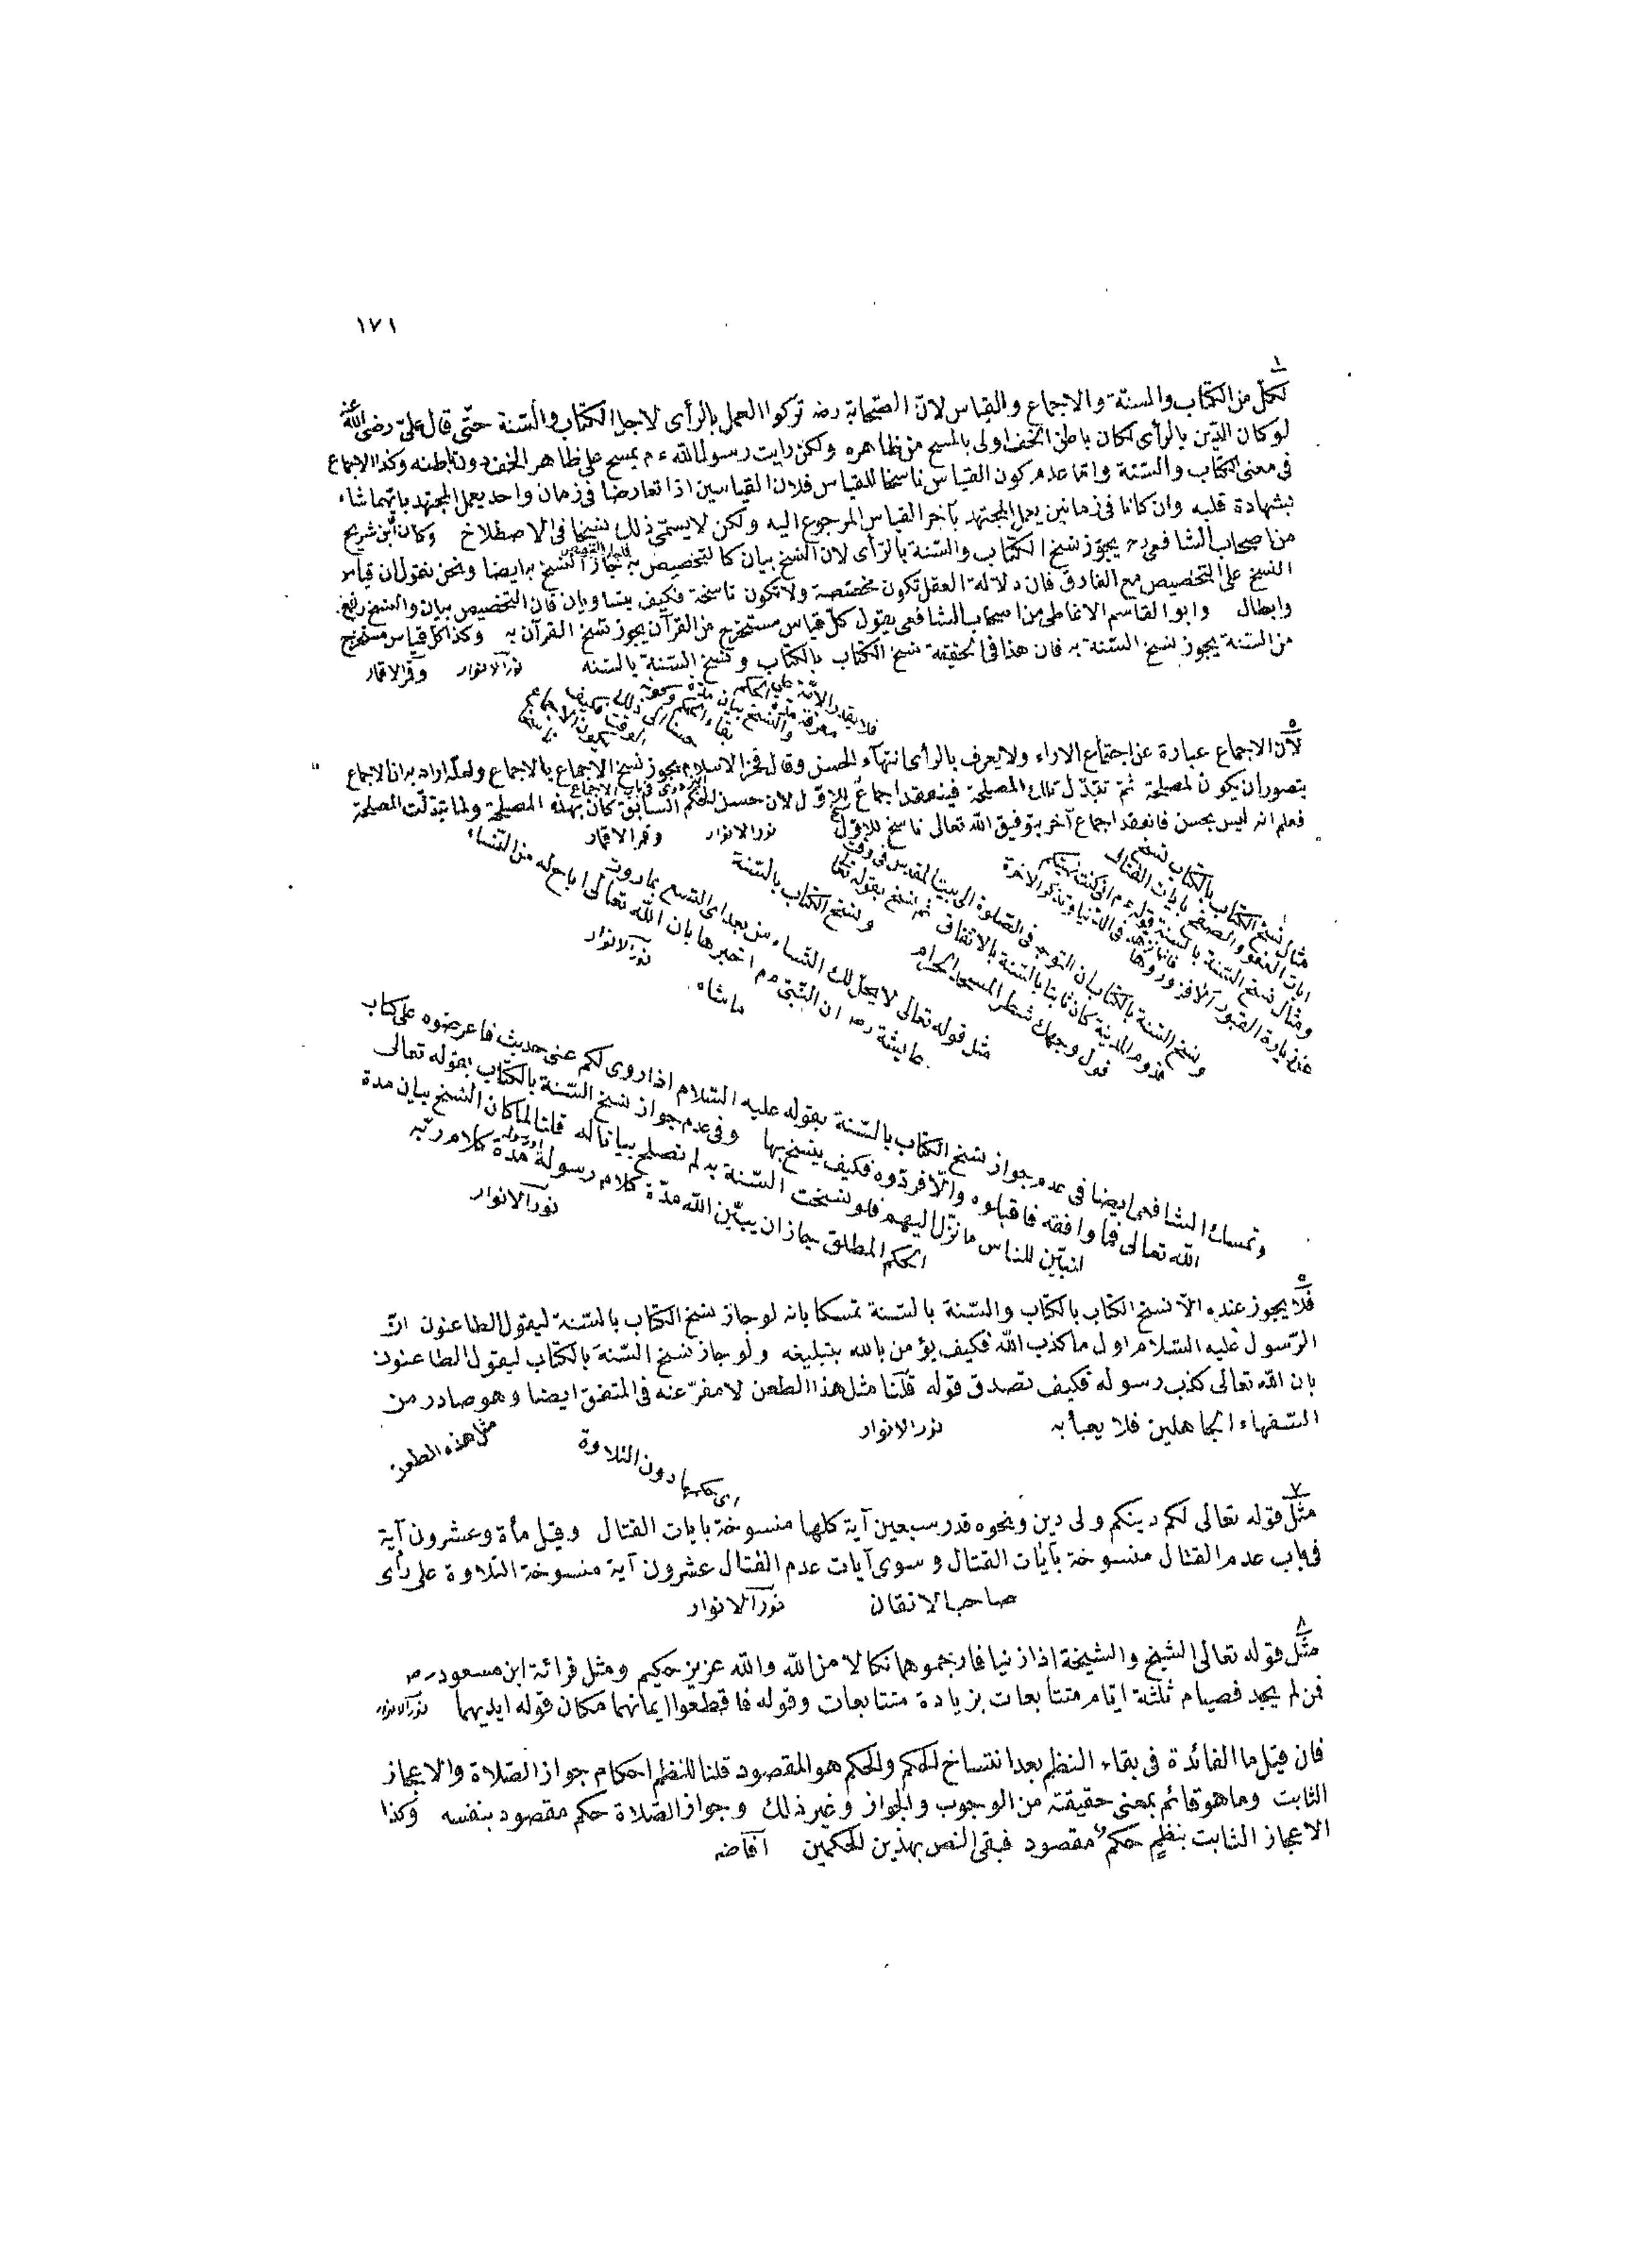 ١٧١
١
لكلّ من الكتاب والسنة والاجماع والقياس لانّ الصّحابة رضه تركوا العمل بالرأى لاجل الكتاب والسّنة حتّى قال علىّ رضى الله عنه
لو كان الدّين بالرأى لكان باطن الخف اولى بالمسح من ظاهره ولكن رايت رسول الله ءم يمسح على ظاهر الخف دون باطنه وكذا الاجماع
فى معنى الكتاب والسّنة وامّا عدم كون القياس ناسخا للقياس فلان القياسين اذا تعارضا فى زمان واحد يعمل المجتهد بايّهما شاء
بشهادة قلبه وان كانا فى زمانين يعمل المجتهد بآخر القياس المرجوع اليه ولكن لا يسمّى ذلك نسخا فى الاصطلاح وكان ابن شريح
من اصحاب الشافعى رح يجوّز نسخ الكتاب والسّنة بالرّأى لان النسخ بيان كالتخصيص فجاز النسخ به ايضا ونحن نقول ان قياس
النسخ على التخصيص مع الفارق فان دلالة العقل تكون مخصّصة ولا تكون ناسخة فكيف يتساويان فان التخصيص بيان والنسخ رفع
وابطال وابو القاسم الانماطى من اصحاب الشافعى يقول كلّ قياس مستخرج من القرآن يجوز نسخ القرآن به وكذا كل قياس مستخرج
من السّنة يجوز نسخ السّنة به فان هذا فى الحقيقة نسخ الكتاب بالكتاب ونسخ السّنة بالسّنه نور الانوار وقمر الاقمار
٥
لأن الاجماع عبارة عن اجتماع الاراء ولا يعرف بالرأى انتهاء الحسن وقال فخر الاسلام يجوز نسخ الاجماع بالاجماع ولعلّه اراد به ان الاجماع
يتصور ان يكون لمصلحة ثم تتبدّل تلك المصلحة فينعقد اجماع للاوّل لان حسن الحكم السابق كان بهذه المصلحة ولما تبدّلت المصلحة
فعلم انه ليس بحسن فانعقد اجماع آخر بتوفيق الله تعالى ناسخ للاول نور الانوار وقمر الاقمار
مثال نسخ الكتاب بالكتاب نسخ
ايات العفو والصفح بايات القتال
ومثال نسخ السّنة بالسنة قوله ءم انى كنت نهيتكم
عن زيارة القبور الا فزوروها فانها تزهد فى الدّنيا وتذكر الاخرة
ونسخ السّنة بالكتاب ان التوجه فى الصّلوة الى بيت المقدس فى وقت
قدوم المدينة كان ثابتا بالسّنة بالاتفاق ثم نسخ بقوله تعا
فول وجهك شطر المسجد الحرام ونسخ الكتاب بالسّنة
مثل قوله تعالى لا يحل لك النّساء من بعد اى التسع بما روت
عايشة رضه ان النّبىّ ءم اخبرها بان الله تعالى اباح له من النّساء
ما شاء نور الانوار
وتمسك الشافعى ايضا فى عدم جواز نسخ الكتاب بالسّنة بقوله عليه السّلام اذا روى لكم عنى حديث فاعرضوه على كتاب
الله تعالى فما وافقه فاقبلوه والّا فردّوه فكيف ينسخ بها وفى عدم جواز نسخ السّنة بالكتاب بقوله تعالى
لتبيّن للناس ما نزّل اليهم فلو نسخت السّنة به لم تصلح بيانا له قلنا لما كان النسخ بيان مدة
الحكم المطلق جاز ان يبيّن الله مدّة كلام رسوله او رسوله مدّة كلام ربّه
نور الانوار
٥
فلا يجوز عنده الّا نسخ الكتاب بالكتاب والسّنة بالسّنة تمسكا بانه لو جاز نسخ الكتاب بالسّنة ليقول الطاعنون انّ
الرّسول عليه السّلام اول ما كذب الله فكيف يؤمن بالله بتبليغه ولو جاز نسخ السّنة بالكتاب ليقول الطاعنون
بان الله تعالى كذب رسوله فكيف تصدق قوله قلنا مثل هذا الطعن لا مفرّ عنه فى المتفق ايضا وهو صادر من
السّفهاء الجاهلين فلا يعبأ به نور الانوار
مثل هذه الطعن
اى حكمها دون التلاوة
٧
مثل قوله تعالى لكم دينكم ولى دين ونحوه قدر سبعين آية كلها منسوخة بايات القتال وقيل مأة وعشرون آية
فى باب عدم القتال منسوخة بآيات القتال وسوى آيات عدم القتال عشرون آية منسوخة التلاوة على رأى
صاحب الاتقان نور الانوار
٨
مثل قوله تعالى الشيخ والشيخة اذا زنيا فارجموهما نكالا من الله والله عزيز حكيم ومثل قرائة ابن مسعود رضه
فمن لم يجد فصيام ثلثة ايّام متتابعات بزيادة متتابعات وقوله فاقطعوا ايمانهما مكان قوله ايديهما نور الانوار
فان قيل ما الفائدة فى بقاء النظم بعد انتساخ الحكم والحكم هو المقصود قلنا للنظم احكام جواز الصّلاة والاعجاز
الثابت وما هو قائم بمعنى حقيقته من الوجوب والجواز وغير ذلك وجواز الصّلاة حكم مقصود بنفسه وكذا
الاعجاز الثابت بنظم حكم مقصود فبقى النص بهذين الحكمين افاضه